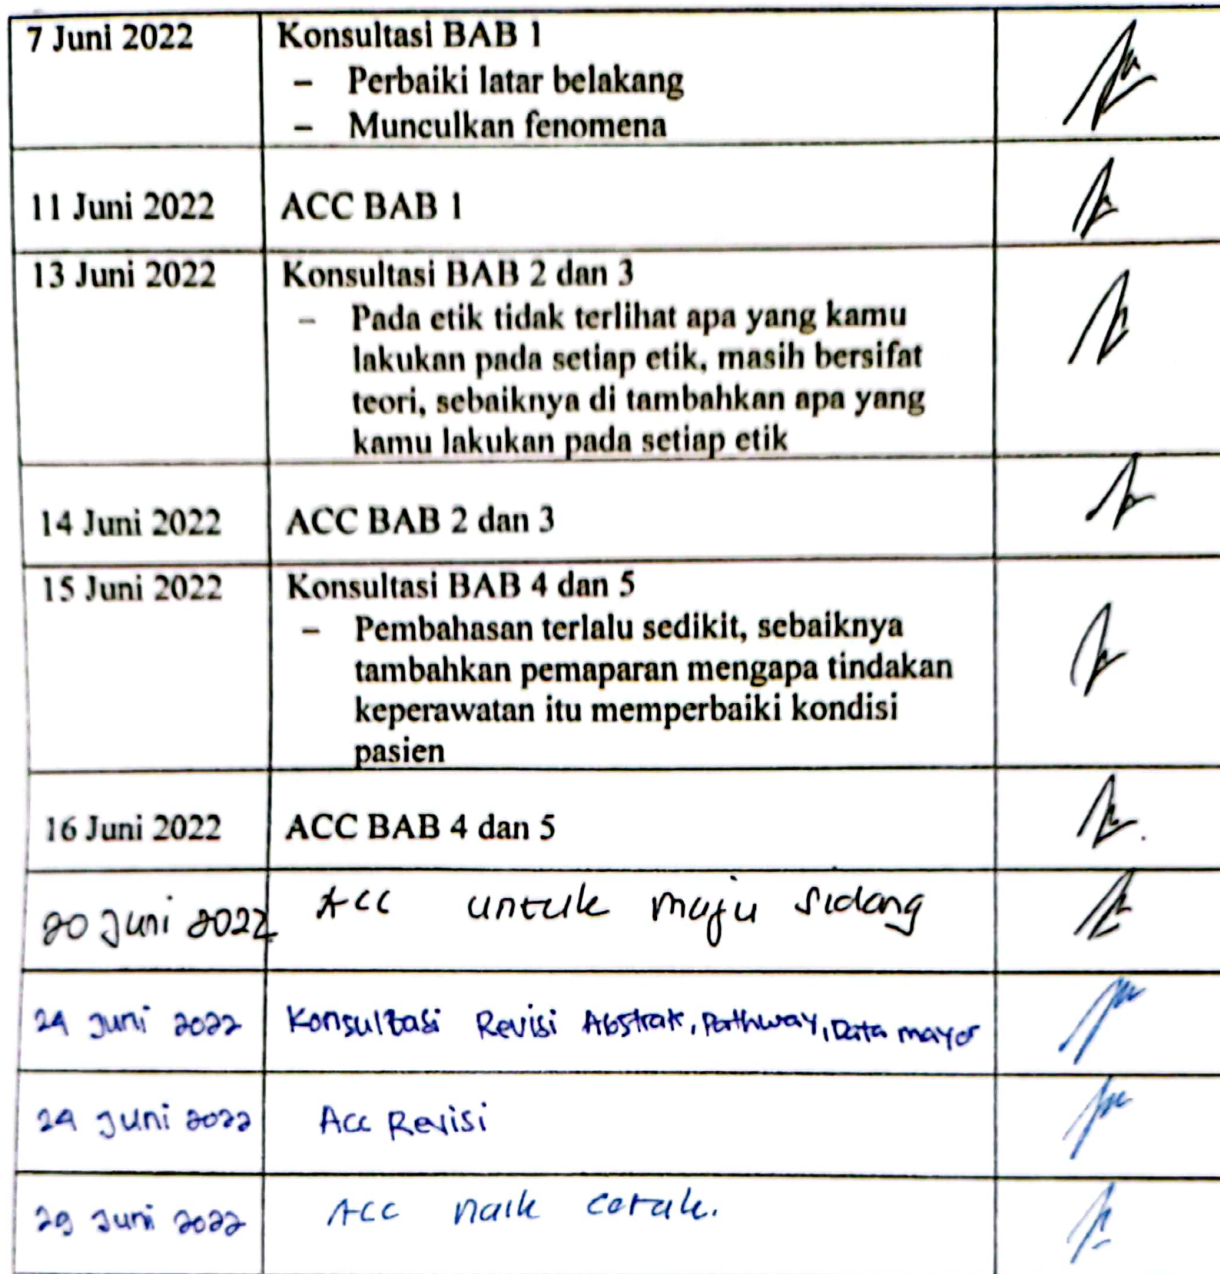 7 Juni 2022 Konsultasi BAB 1
– Perbaiki latar belakang
– Munculkan fenomena
11 Juni 2022 ACC BAB 1
13 Juni 2022 Konsultasi BAB 2 dan 3
– Pada etik tidak terlihat apa yang kamu
lakukan pada setiap etik, masih bersifat
teori, sebaiknya di tambahkan apa yang
kamu lakukan pada setiap etik
14 Juni 2022 ACC BAB 2 dan 3
15 Juni 2022 Konsultasi BAB 4 dan 5
– Pembahasan terlalu sedikit, sebaiknya
tambahkan pemaparan mengapa tindakan
keperawatan itu memperbaiki kondisi
pasien
16 Juni 2022 ACC BAB 4 dan 5
20 Juni 2022 Acc untuk maju sidang
24 Juni 2022 Konsultasi Revisi Abstrak, Pathway, Data mayor
24 Juni 2022 Acc Revisi
29 Juni 2022 Acc naik cetak.